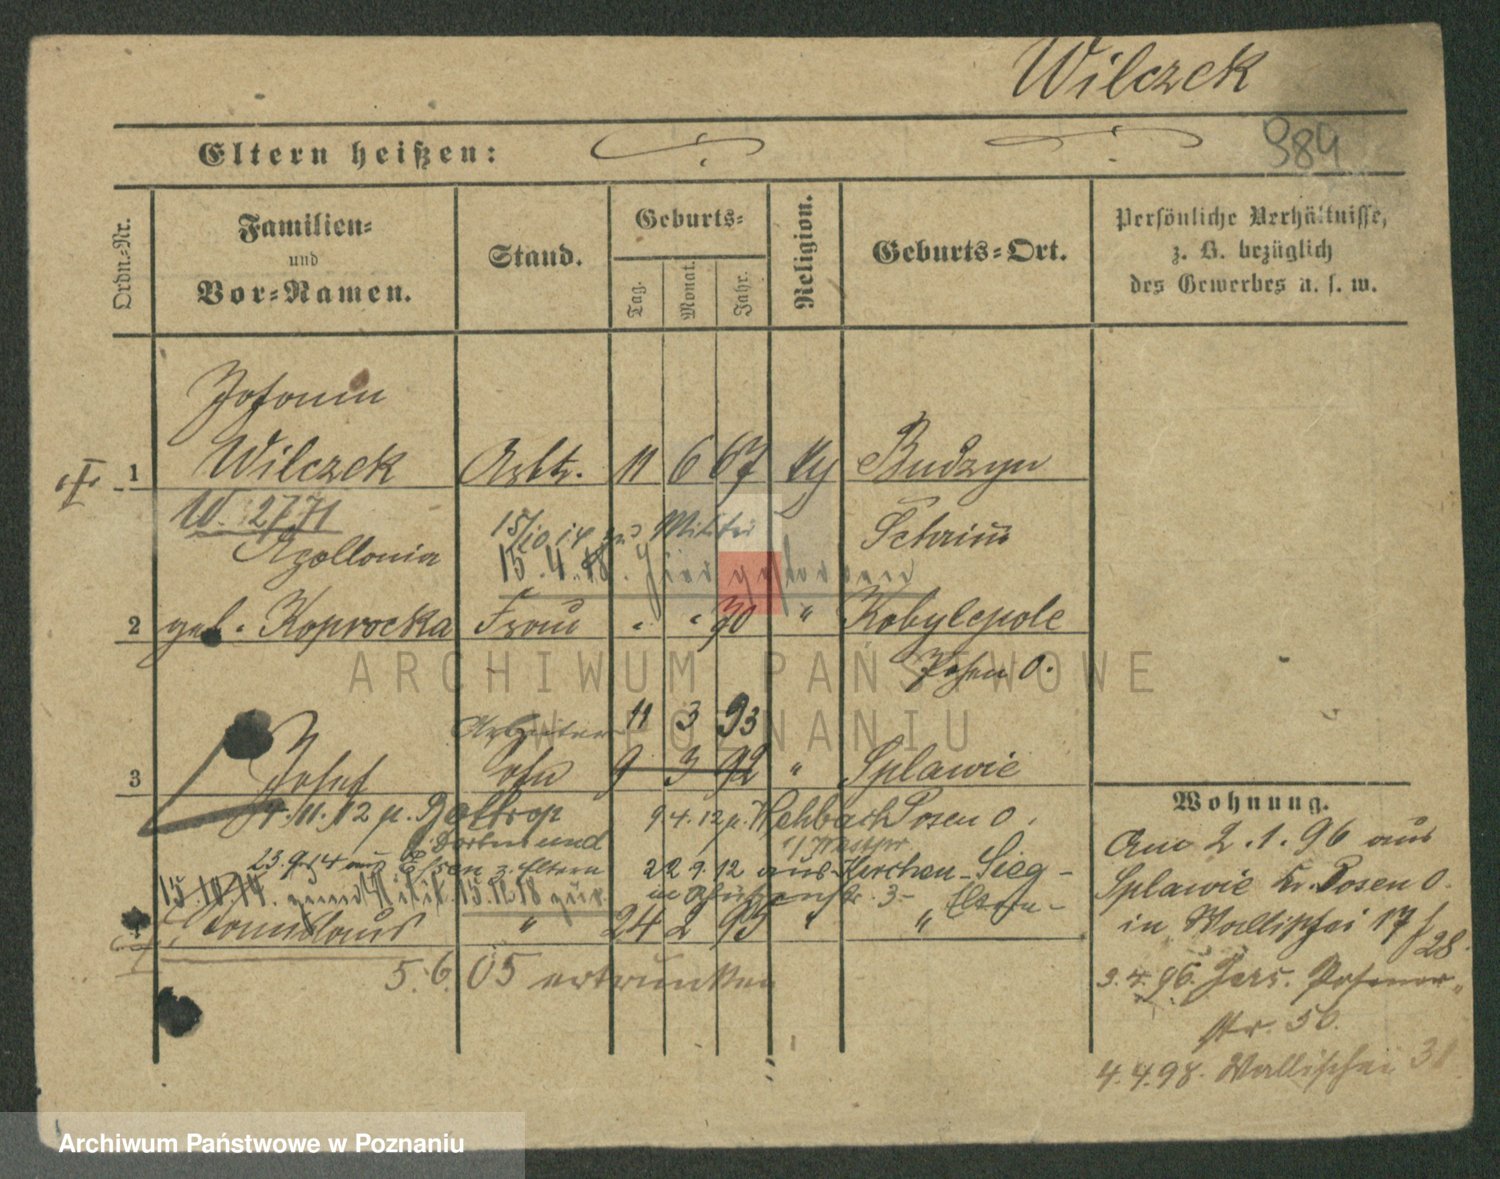 Wilczek
984
Eltern heißen:
Ordn.-Nr.
Familien-
und
Vor-Namen.
Stand.
Geburts-
Tag.
Monat.
Jahr.
Religion.
Geburts-Ort.
Persönliche Verhältnisse,
z. B. bezüglich
des Gewerbes u. s. w.
1 Wilczek Arbtr. 11 6 67 Budzyn
W. 2771
Schrimm
Apollonia
15/10 14 zu Militär
15.4.18.
2 geb. Koprocka Frau " " 70 " Kobylepole
Posen O.
Arbeiter 11 3 93
3 Josef Sohn 9 3 92 " Splawie
4.11.12 n. Bottrop
9 4.12 n. Posen O.
Dortmund
23.9.14 aus Essen z. Eltern
22 9. 12 aus Kirchen-Sieg-
15.10.14. 15.12.18 zur.
3- Eltern-
4 " 24 2 95 " "
5.6.05 ertrunken
Wohnung.
Am 2.1.96 aus
Splawie Kr. Posen O.
in Wallischei 17/28.
3.4.96. Jers. Posener-
str. 50.
4.4.98. Wallischei 31
ARCHIWUM PAŃSTWOWE
W POZNANIU
Archiwum Państwowe w Poznaniu